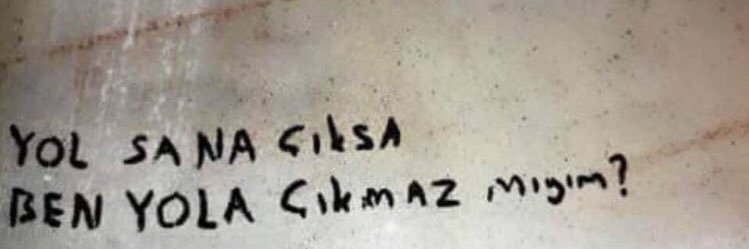 YOL SANA ÇIKSA
BEN YOLA ÇIKMAZ mıyım?